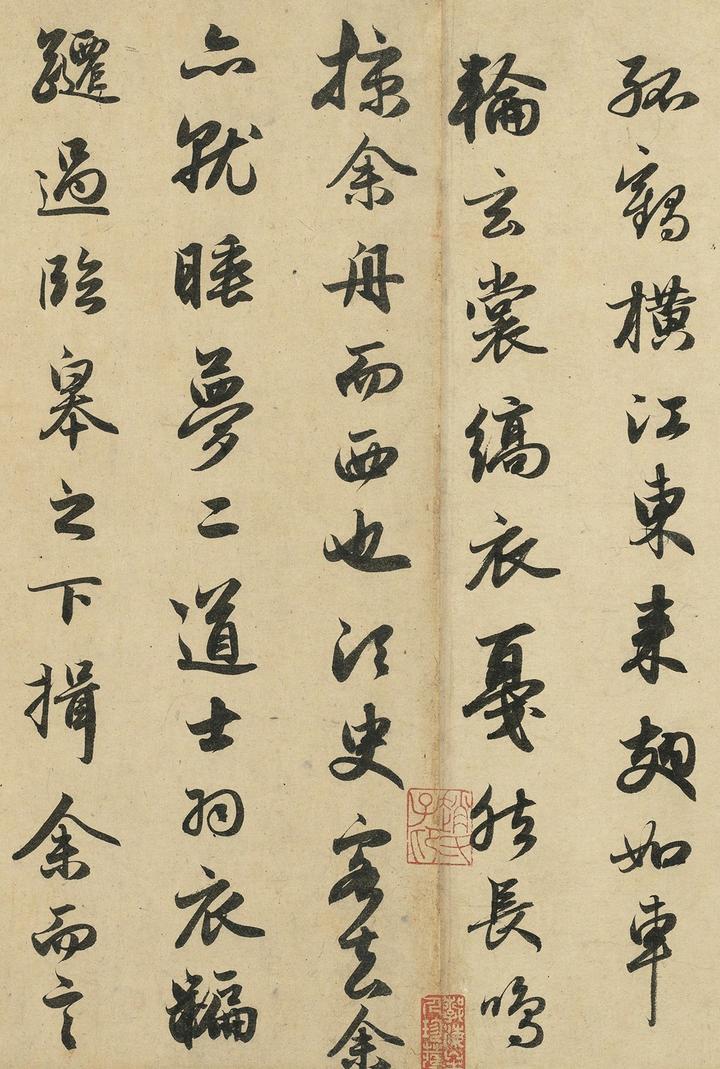 孤鶴橫江東來翅如車
輪玄裳縞衣戛然長鳴
掠余舟而西也須臾客去余
亦就睡夢二道士羽衣蹁
躚過臨皋之下揖余而言
趙氏子昂